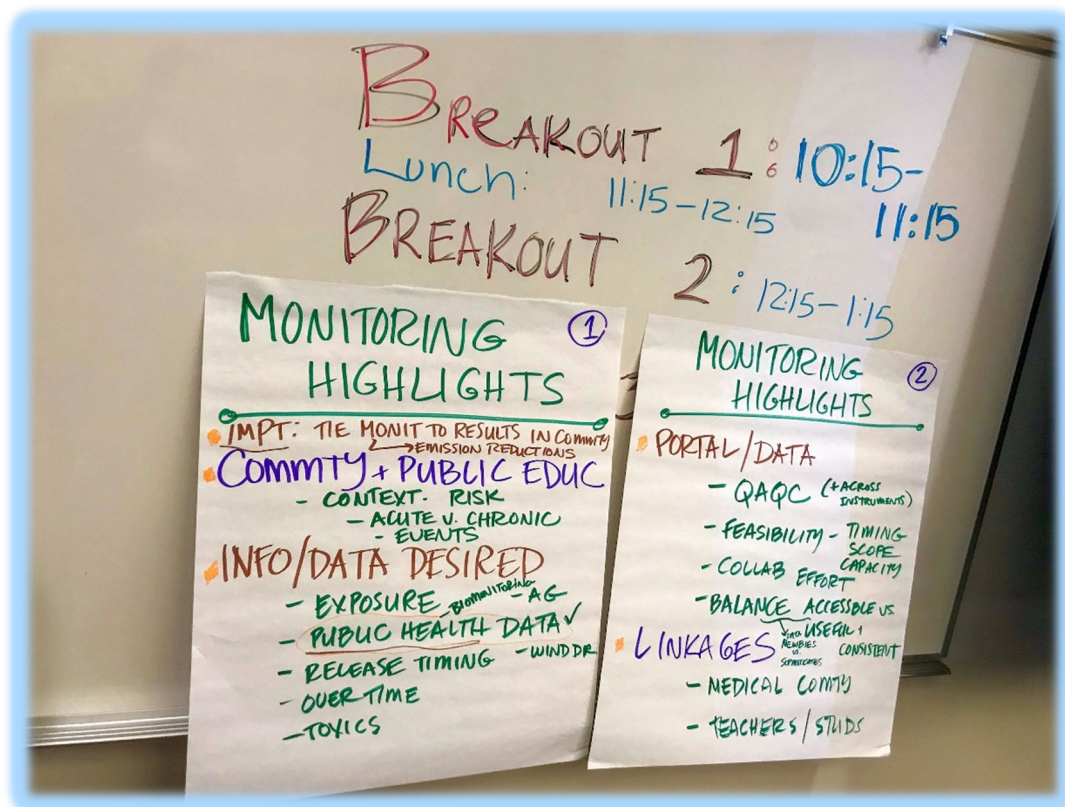 BREAKOUT 1: 10:15-
11:15
Lunch: 11:15-12:15
BREAKOUT 2: 12:15-1:15
3
MONITORING 1
HIGHLIGHTS
IMPT: TIE MONIT TO RESULTS IN COMMTY
EMISSION REDUCTIONS
COMMTY + PUBLIC EDUC
- CONTEXT- RISK
- ACUTE V. CHRONIC
- EVENTS
INFO/DATA DESIRED
- EXPOSURE BIOMONITORING - AG
- PUBLIC HEALTH DATA ✓
- RELEASE TIMING - WIND DR
- OVER TIME
- TOXICS
MONITORING 2
HIGHLIGHTS
PORTAL/DATA
- QAQC (+ ACROSS
INSTRUMENTS)
- FEASIBILITY - TIMING
SCOPE
CAPACITY
- COLLAB EFFORT
- BALANCE ACCESSIBLE VS.
USEFUL +
CONSISTENT
DATA
NEWBIES
VS.
SOPHISTICATES
LINKAGES
- MEDICAL COMTY
- TEACHERS / STUDS